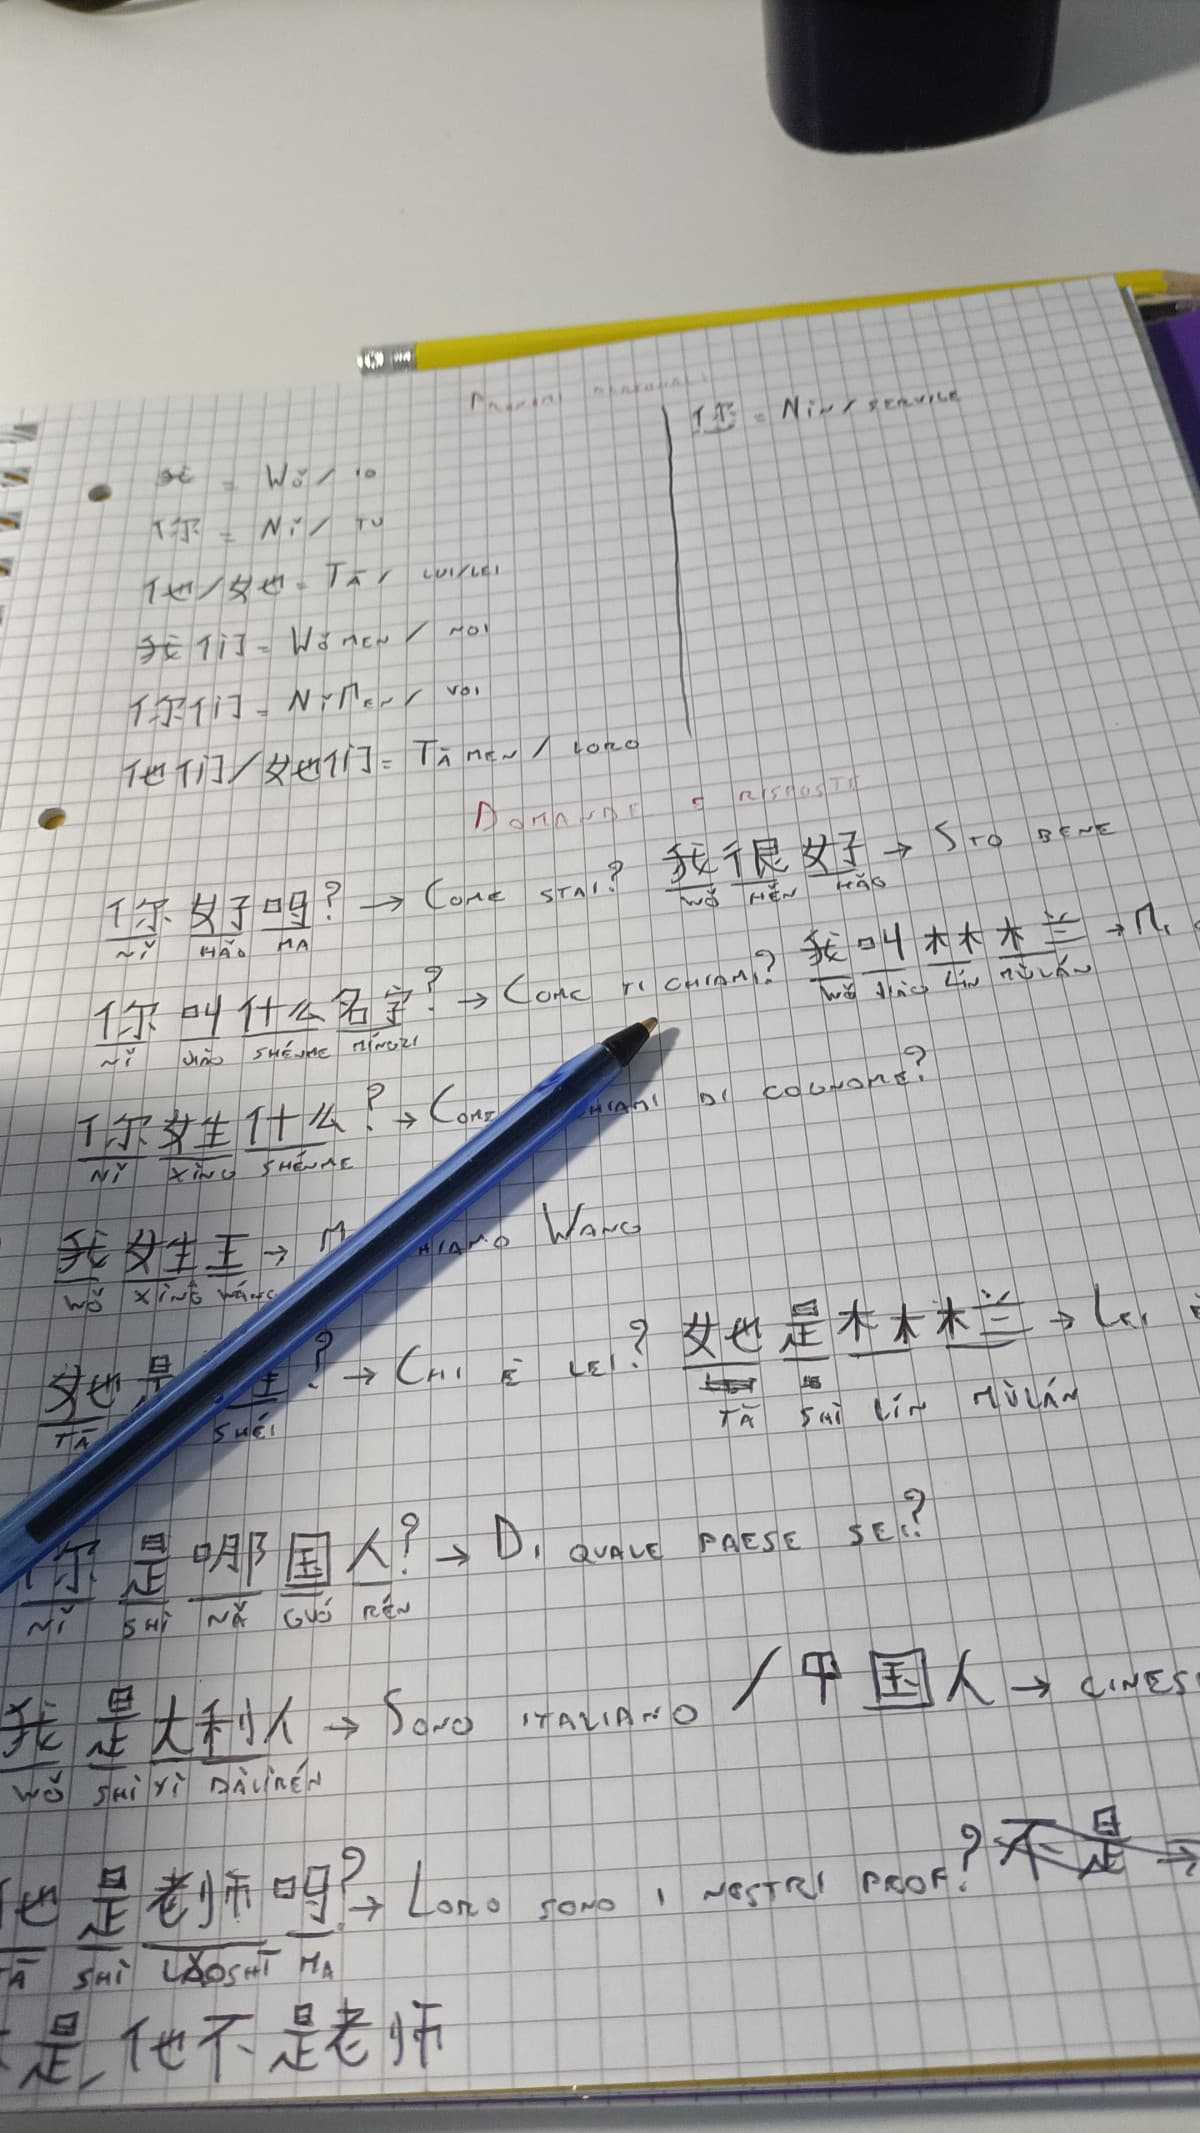 PRONOMI PERSONALI
我 = Wǒ / IO
您 = Nín / SERVILE
你 = Nǐ / TU
他/她 = TĀ / LUI/LEI
我们 = WǒMEN / NOI
你们 = NǐMEN / VOI
他们/她们 = TĀMEN / LORO
DOMANDE E RISPOSTE
你好吗? → COME STAI? 我很好 → STO BENE
NǏ HǍO MA WǑ HĚN HǍO
你叫什么名字? → COME TI CHIAMI? 我叫林木兰 → MI
NǏ JIÀO SHÉNME MÍNGZI WǑ JIÀO LÍN MÙLÁN
你姓什么? → COME CHIAMI DI COGNOME?
NǏ XÌNG SHÉNME
我姓王 → CHIAMO WANG
WǑ XÌNG WÁNG
她是谁? → CHI È LEI? 她是林木兰 → LEI È
TĀ SHÉI TĀ SHÌ LÍN MÙLÁN
你是哪国人? → DI QUALE PAESE SEI?
NǏ SHÌ NǍ GUÓ RÉN
我是大利人 → SONO ITALIANO / 中国人 → CINESE
WǑ SHÌ YÌ DÀLÌRÉN
他是老师吗? → LORO SONO I NOSTRI PROF? 不是 →
TĀ SHÌ LǍOSHĪ MA
是, 他不是老师